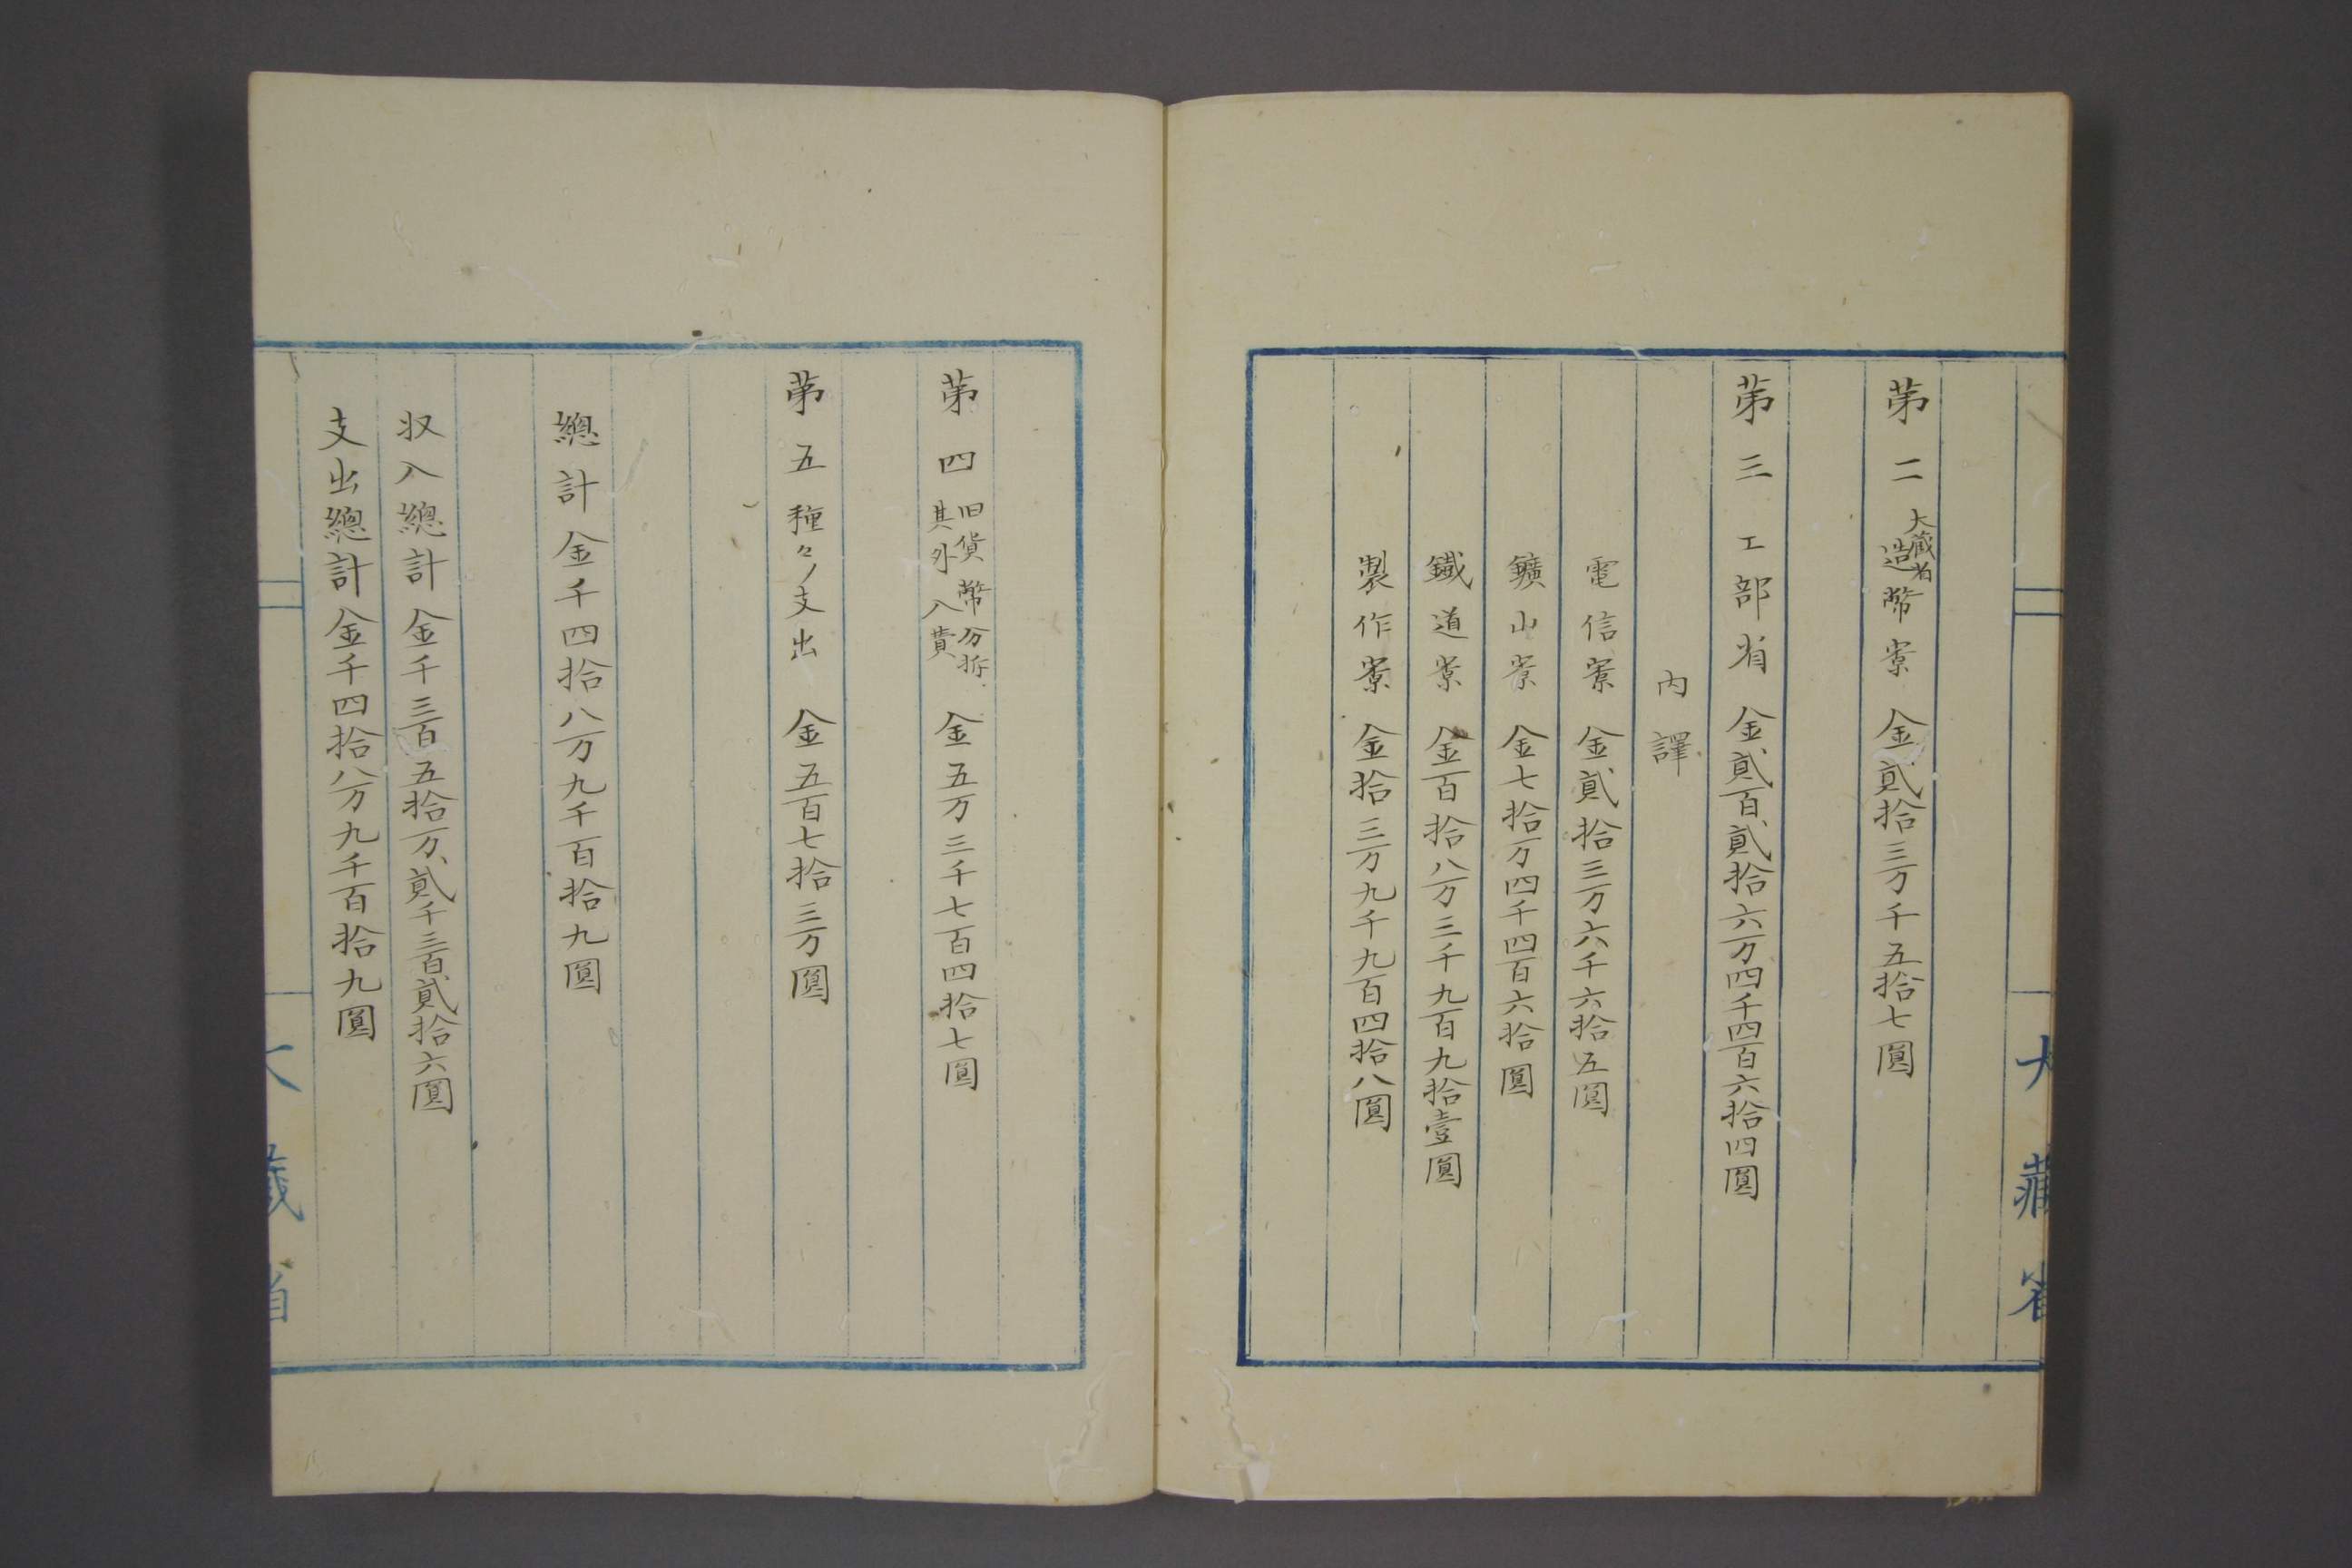 大藏省
第二 大蔵省造幣寮 金貳拾三万千五拾七圓
第三 工部省 金貳百貳拾六万四千四百六拾四圓
内譯
電信寮 金貳拾三万六千六拾五圓
鑛山寮 金七拾万四千四百六拾圓
鐵道寮 金百拾八万三千九百九拾壹圓
製作寮 金拾三万九千九百四拾八圓
第四 旧貨幣分拆其外入費 金五万三千七百四拾七圓
第五 種々ノ支出 金五百七拾三万圓
總計金千四拾八万九千百拾九圓
収入總計金千三百五拾万貳千三百貳拾六圓
支出總計金千四拾八万九千百拾九圓
大藏省